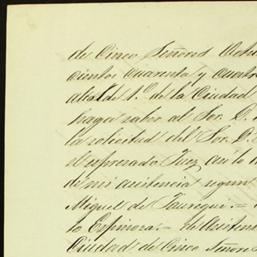 de Cinco Señores Ocho
cientos cuarenta y cuatro
alcalde 1º de la Ciudad
haga saber al Sor. D.
la solicitud del Sor. D.
el espresado Juez an lo
de mi asistencia segun
Miguel de Jauregui. =
to Espinosa. = de asisten
Ciudad de Cinco Señores